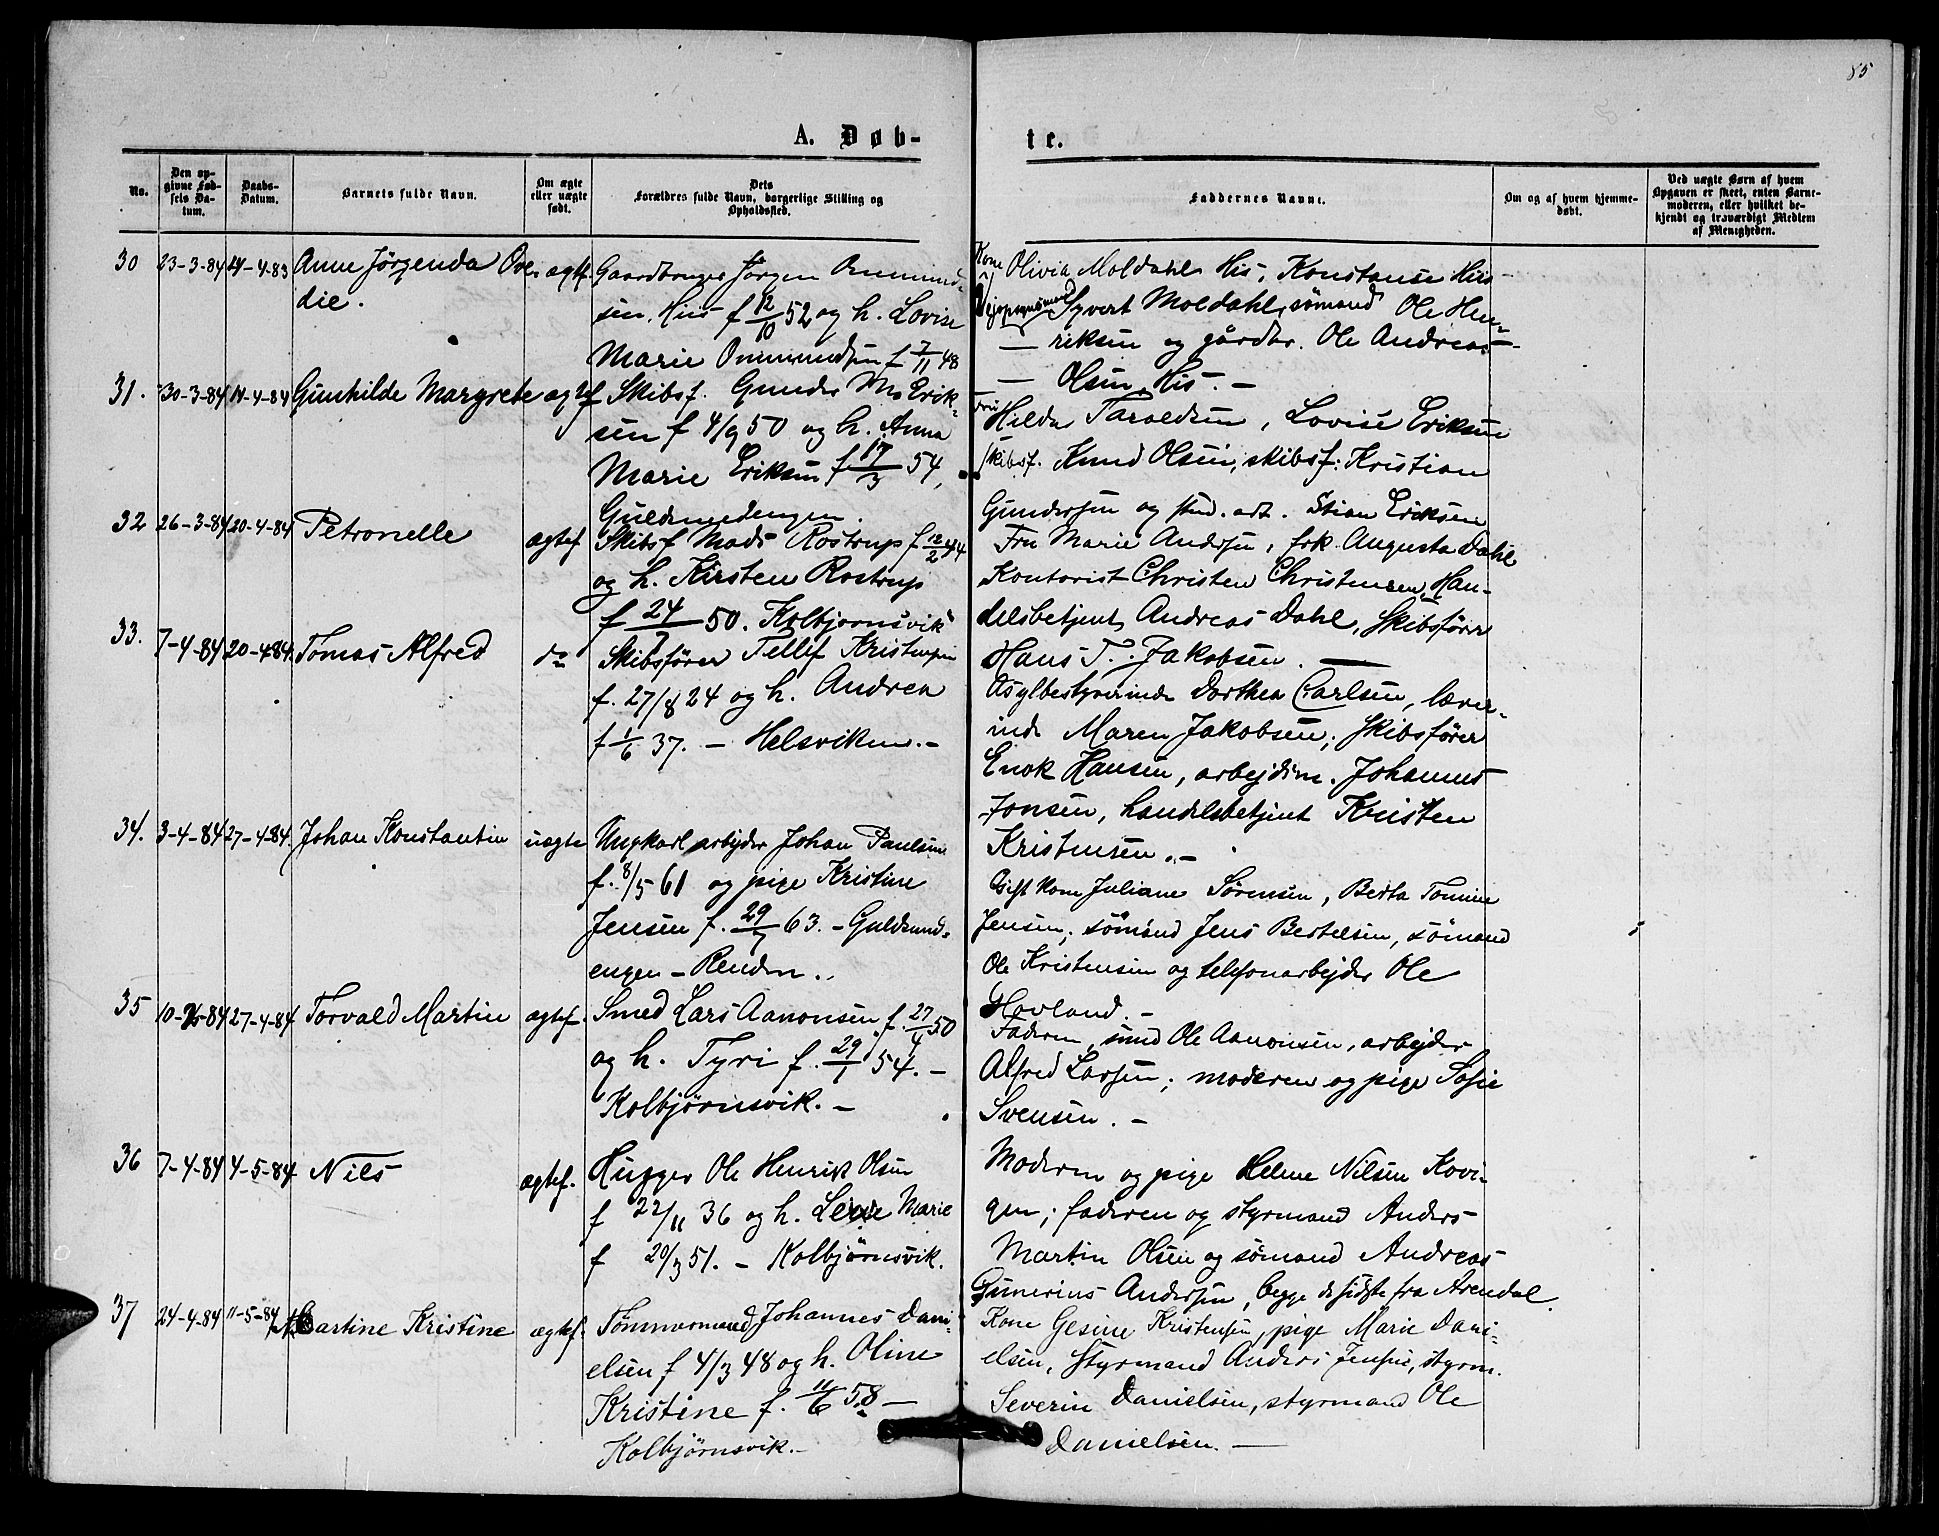 85
A. Døb-
te.
No.
Den opgivne Fødsels Datum.
Daabs-Datum.
Barnets fulde Navn.
Om ægte eller uægte født.
Dets Forældres fulde Navn, borgerlige Stilling og Opholdssted.
Faddernes Navne.
Om og af hvem hjemmedøbt.
Ved uægte Børn af hvem Opgaven er skeet, enten Barnemoderen, eller hvilket bekjendt og troværdigt Medlem af Menigheden.
30 23-3-84 14-4-83 Anne Jørgenda Ove- ægtf. Gaardbruger Jørgen Ommund-
die. sen, His f 12/10 52 og h. Lovise
Marie Ommundsen f 7/11 48
Kone Olivia Moldahl His, Konstanse His
Syvert Moldahl, sømand Ole Hen-
— riksen og gårdbr. Ole Andreas
— Olsen His. —
31. 30-3-84 14-4-84 Gunhilde Margrete ægtef Skibsf. Gunder Ms Erik-
sen f 4/9 50 og h. Anna
Marie Eriksen f 17/3 54,
Guldsmedengen.
Fru Hilda Taraldsen, Lovise Eriksen
skibsf. Knud Olsen, skibsf. Kristian
Gundersen og stud. art. Stian Eriksen
32 26-3-84 20-4-84 Petronelle ægtef. Skibsf Mads Rostrup f 12/2 44
og h. Kirsten Rostrup
f 24/7 50. Kolbjørnsvik
Fru Marie Andersen, frk. Augusta Dahl
Kontorist Christen Christensen, Han-
delsbetjent Andreas Dahl, Skibsfører
Hans T. Jakobsen. —
33. 7-4-84 20-4-84. Tomas Alfred do Skibsfører Tellef Kristensen
f. 27/8 24 og h. Andrea
f 1/6 37. — Helsviken. —
Asylbestyrerinde Dorthea Carlsen, lærer-
inde Maren Jakobsen; Skibsfører
Enok Hansen, arbejdsm. Johannes
Jonsen, handelsbetjent Kristen
Kristensen. —
34. 3-4-84 27-4-84. Johan Konstantin uægte Ungkarl arbejder Johan Paulsen
f. 8/5 61 og pige Kristine
Jensen f. 29/7 63. — Guldsmed-
engen — Renden.
Gift kone Juliane Sørensen, Berta Tomine
Jensen; sømand Jens Bertelsen, sømand
Ole Kristensen og telefonarbejder Ole
Hovland. —
35 10-2-84 27-4-84. Torvald Martin ægtef. Smed Lars Aanonsen f. 27/4 50
og h. Tyri f. 29/1 54. —
Kolbjørnsvik. —
Faderen, smed Ole Aanonsen, arbejder
Alfred Larsen; moderen og pige Sofie
Svensen. —
36 7-4-84 4-5-84 Nils ægtef. Hugger Ole Henrik Olsen
f 22/11 36 og h. Lene Marie
f 20/3 51. — Kolbjørnsvik.
Moderen og pige Helene Nilsen Kovi-
gen; faderen og styrmand Anders
Martin Olsen og sømand Andreas
Gunerius Andersen, begge de sidste fra Arendal.
37 24-4-84 11-5-84 Martine Kristine ægtef. Tømmermand Johannes Dani-
elsen f 4/3 48 og h. Oline
Kristine f. 11/6 58 —
Kolbjørnsvik. —
Kone Gesine Kristensen, pige Marie Dani-
elsen, Styrmand Anders Jensen, styrm.
Severin Danielsen, styrmand Ole
Danielsen. —